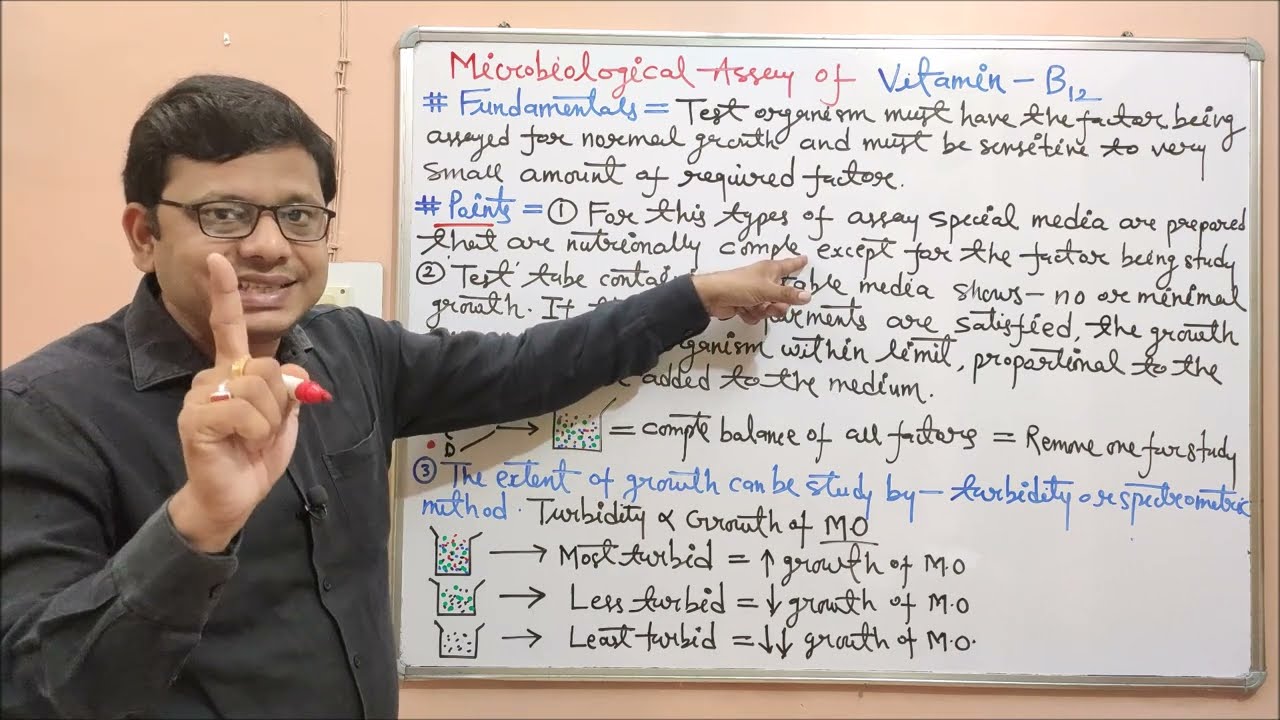 Microbiological Assay of Vitamin-B12
# Fundamentals = Test organism must have the factor being
assayed for normal growth and must be sensitive to very
small amount of required factor.
# Points = ① For this types of assay special media are prepared
that are nutrionally comple except for the factor being study
② Test tube contai table media shows - no or minimal
growth. If irments are satisfied, the growth
organism within limit, proportional to the
added to the medium.
D → = comple balance of all factors = Remove one for study
③ The extent of growth can be study by - turbidity or spectrometric
method. Turbidity ∝ Growth of MO
→ Most turbid = ↑ growth of M.O
→ Less turbid = ↓ growth of M.O
→ Least turbid = ↓↓ growth of M.O.